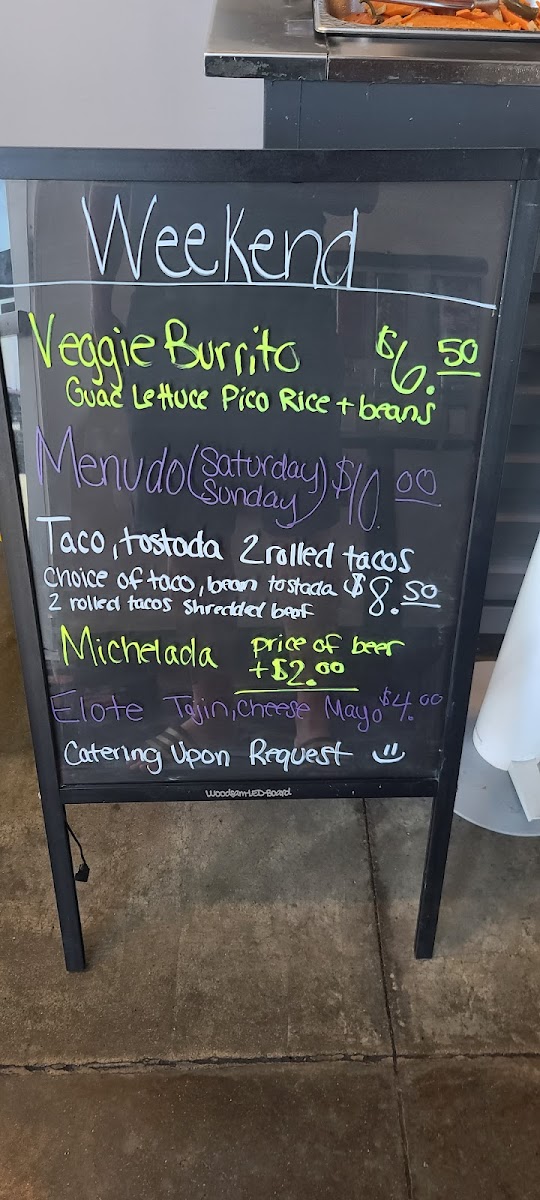 Weekend
Veggie Burrito $6.50
Guac Lettuce Pico Rice + beans
Menudo (Saturday Sunday) $10.00
Taco, tostada 2 rolled tacos
choice of taco, bean tostada $8.50
2 rolled tacos shredded beef
Michelada price of beer
+$2.00
Elote Tajin, cheese Mayo $4.00
Catering Upon Request
Woodsam-LED-Board